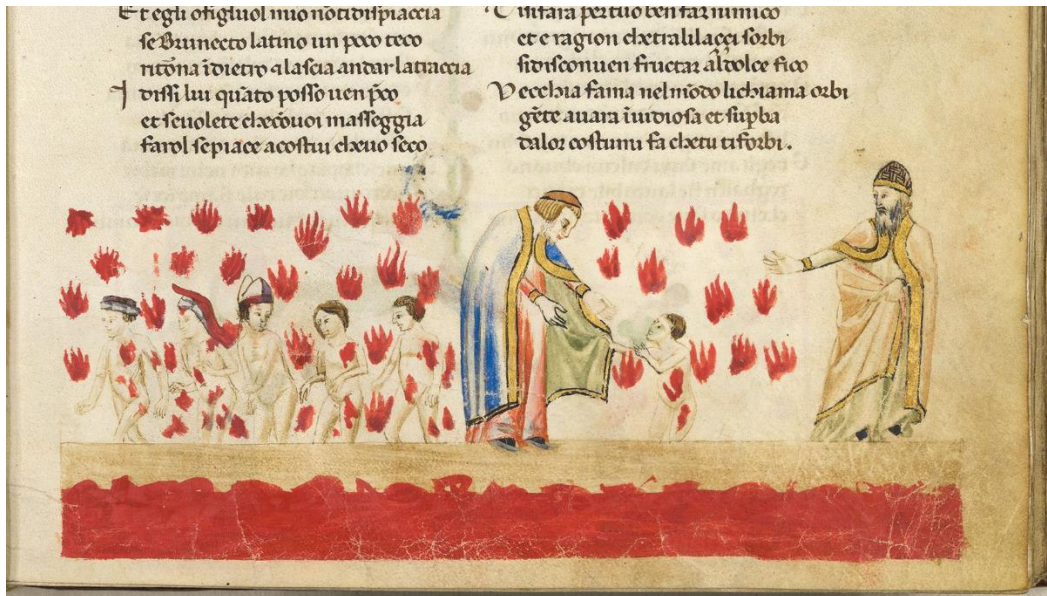 Et egli ofigluol mio nõtidispiaccia
se Brunecto latino un poco teco
ritõna ĩdietro ⁊lascia andar latraccia
I dissi lui quãto posso uen p̃co
et seuolete checõuoi masseggia
farol sepiace acostui cheuo seco
Tisifara pertuo ben far nimico
et e ragion chetralilaççi sorbi
sidisconuen fructar aldolce fico
Vecchia fama nelmõdo lichiama orbi
gẽte auara ĩuidiosa et sup̃ba
dalor costumi fa chetu tiforbi.